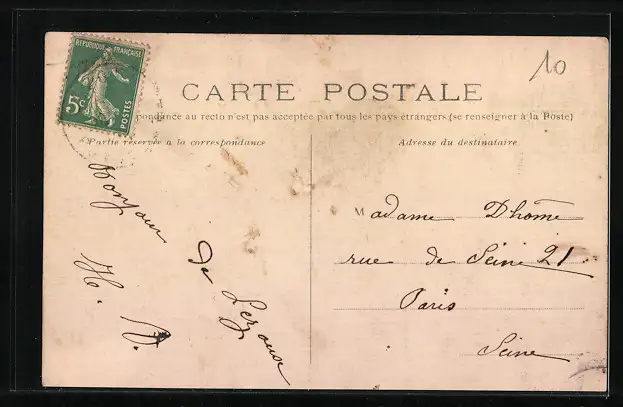 10
REPUBLIQUE FRANÇAISE
5c
POSTES
CARTE POSTALE
pondance au recto n'est pas acceptée par tous les pays étrangers (se renseigner à la Poste)
Partie réservée à la correspondance
Adresse du destinataire
Bonjour
de Lezoux
H. D.
Madame Dhôme
rue de Seine 21
Paris
Seine